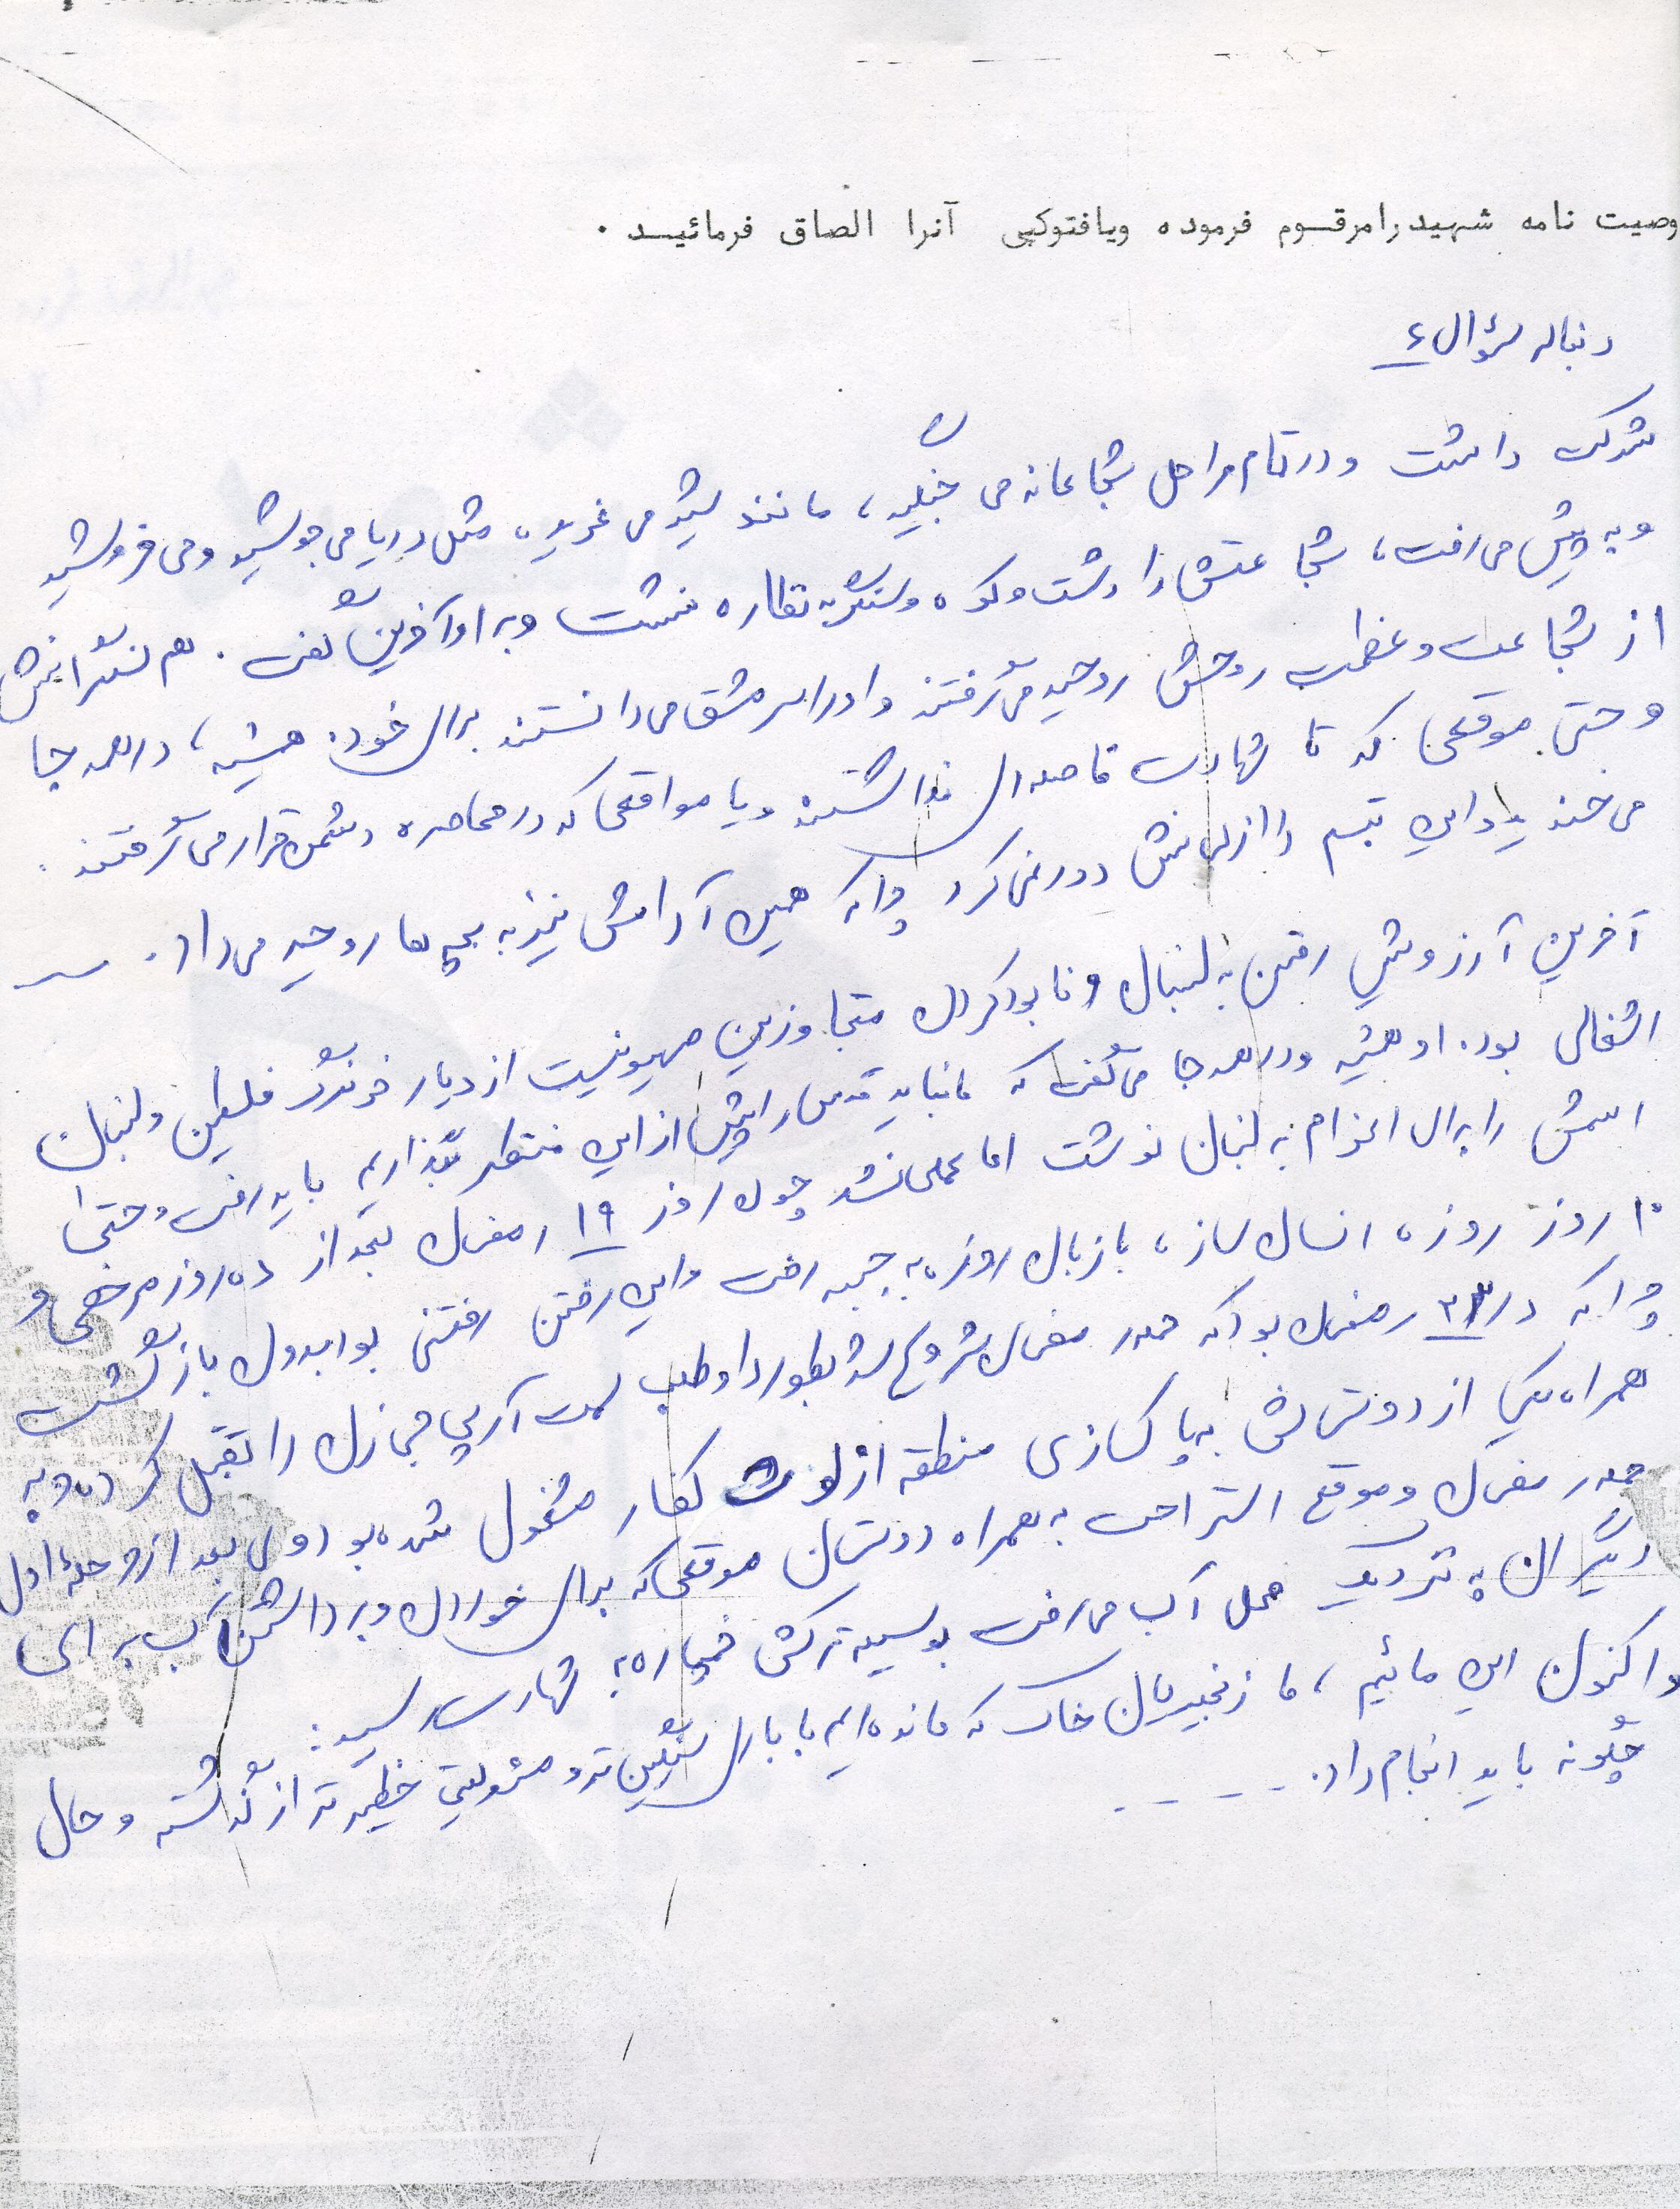 وصیت نامه شهید را مرقوم فرموده و یا فتوکپی آنرا الصاق فرمائید.
دنباله سؤال ٤
شرکت داشت و در تمام مراحل شجاعانه می جنگید، مانند شیر می غرید، مثل دریا می جوشید و می خروشید
و به پیش می رفت، شجاعتش را دشت و کوه و سنگر به نظاره نشست و بر او آفرین گفت. همسنگرانش
از شجاعت و عظمت روحش روحیه می گرفتند و او را سرمشق می دانستند برای خود. همیشه، در همه جا
و حتی موقعی که تا شهادت فاصه ای نداشتند و یا مواقعی که در محاصره دشمن قرار می گرفتند.
می خندید و این تبسم را از لبانش دور نمی کرد چرا که همین آرامش نیز به بچه ها روحیه می داد.
آخرین آرزویش رفتن به لبنان و نابود کردن متجاوزین صهیونیست از دیار خونرنگ فلسطین و لبنان
اشغالی بود. او همیشه و در همه جا می گفت که ما نباید قدس را بیش از این منتظر بگذاریم باید رفت و حتی
اسمش را برای اعزام به لبنان نوشت اما عملی نشد چون روز ١٩ رمضان بعد از ده روز مرخصی و
١٠ روز روزه انسان ساز، با زبان روزه به جبهه رفت و این رفتن رفتنی بود بدون بازگشت
چرا که در ٢٣ رمضان بود که حمله رمضان شروع شد بطور داوطلب سمت آرپی جی زن را تقبل کرده و به
همراه یکی از دوستانش به پاکسازی منطقه از لوث کفار مشغول شده بود ولی بعد از مرحله اول
حمله رمضان و موقع استراحت به همراه دوستان موقعی که برای خوردن و برداشتن آب برای
دیگران به نزدیک محل آب می رفت بوسیله ترکش خمپاره به شهادت رسید.
و اکنون این مائیم، ما زنجیریان خاک که مانده ایم با باری سنگین تر و مسئولیتی خطیرتر از گذشته و حال
چگونه باید انجام داد. ----